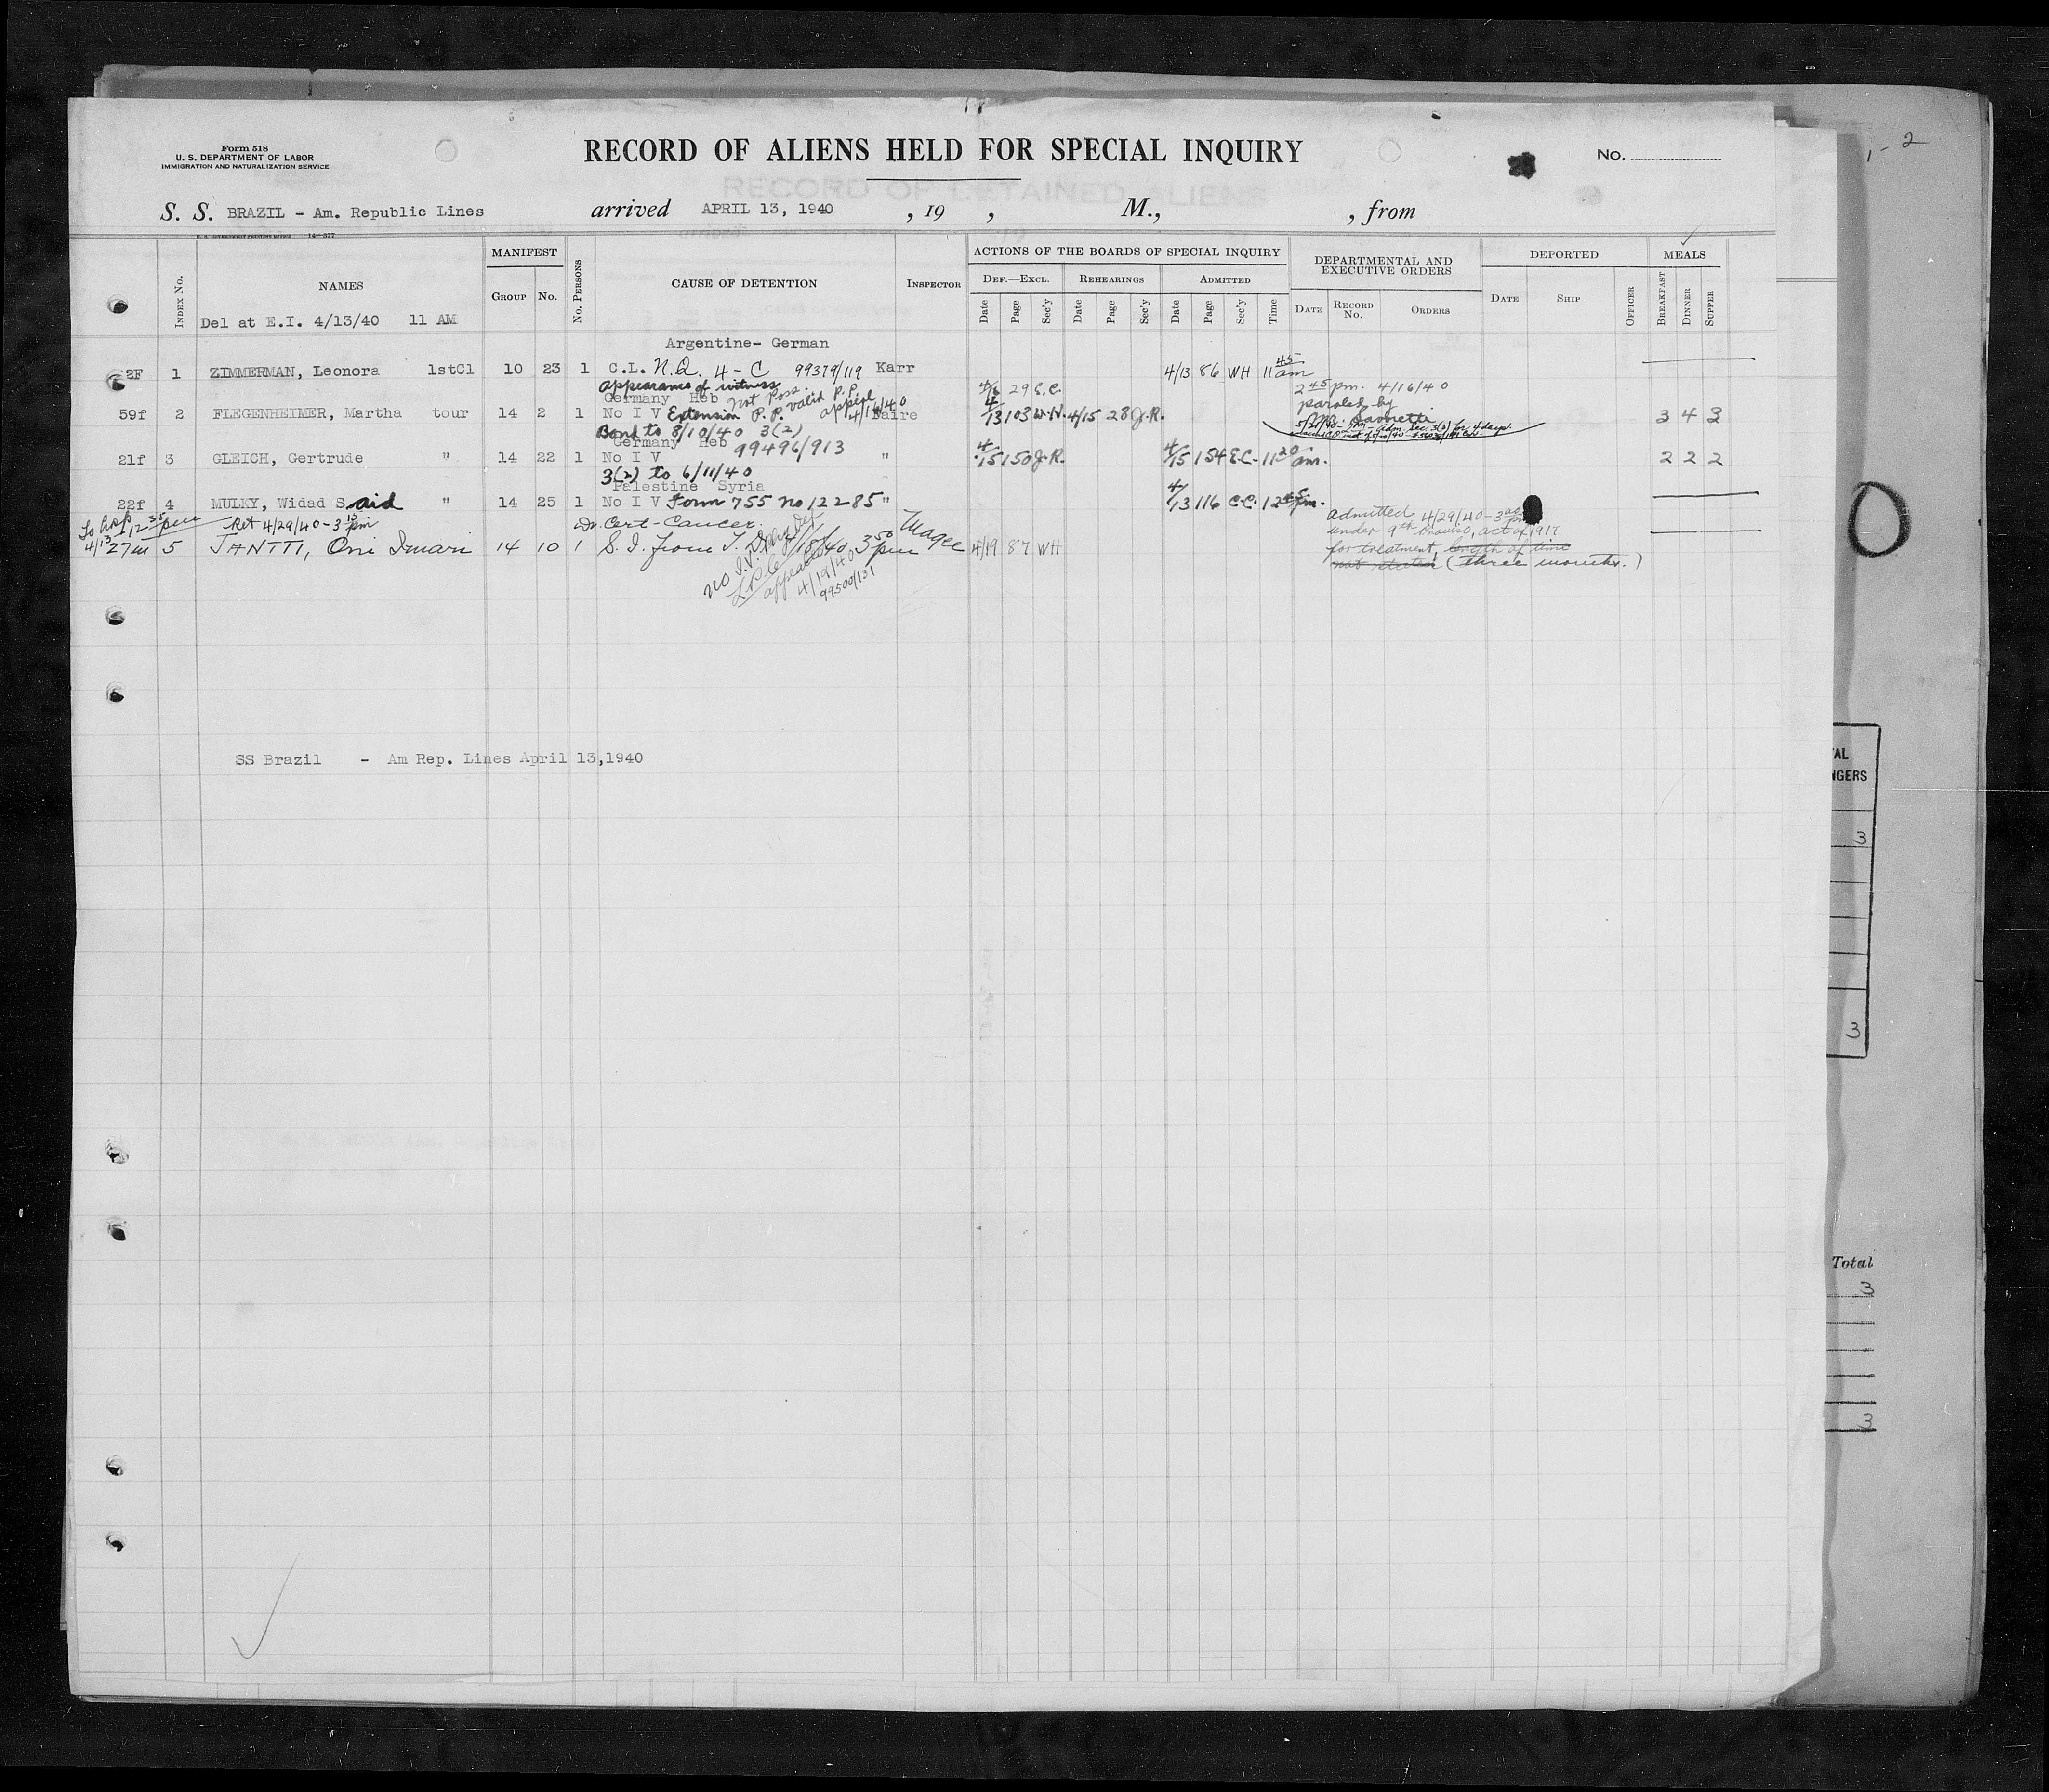 1-2
Form 518
U. S. DEPARTMENT OF LABOR
IMMIGRATION AND NATURALIZATION SERVICE
RECORD OF ALIENS HELD FOR SPECIAL INQUIRY
No.
RECORD OF DETAINED ALIENS
S. S. BRAZIL - Am. Republic Lines arrived APRIL 13, 1940 , 19 , M., , from
U. S. GOVERNMENT PRINTING OFFICE 14-577
Index No. NAMES MANIFEST Group No. No. Persons CAUSE OF DETENTION Inspector ACTIONS OF THE BOARDS OF SPECIAL INQUIRY DEPARTMENTAL AND EXECUTIVE ORDERS DEPORTED MEALS
Def.—Excl. Rehearings Admitted
Date Page Sec'y Date Page Sec'y Date Page Sec'y Time Date Record No. Orders Date Ship Officer Breakfast Dinner Supper
Del at E.I. 4/13/40 11 AM
Argentine- German
2F 1 ZIMMERMAN, Leonora 1stCl 10 23 1 C.L. N.Q. 4-C 99379/119 Karr 4/13 86 WH 11 45 am
appearance of witness
Germany Heb not Poss. valid P.P. 29 E.C. 2 45 pm. 4/16/40
59f 2 FLEGENHEIMER, Martha tour 14 2 1 No I V Extension P.P. appeal 4/16/40 Faire 4/13 103 W.N. 4/15 28 J.R. paroled by 3 4 3
Bond to 8/10/40 3(2)
Germany Heb 99496/913
21f 3 GLEICH, Gertrude " 14 22 1 No I V " 4/15 150 J.R. 4/15 154 E.C. 11 20 am. 2 2 2
3(2) to 6/11/40
Palestine Syria
22f 4 MULKY, Widad Said " 14 25 1 No I V Form 755 no 12285 " 4/13 116 C.C. 12 45 pm.
To Hosp 4/13 12 35 pm Ret 4/29/40-3 15 pm Dr. Cert-Cancer. admitted 4/29/40-3
27m 5 JANTTI, Oni Imari 14 10 1 S.I. from T. D. 4/18/40 3 50 pm Magee 4/19 87 WH under 9th Proviso, act of 1917
for treatment, length of time
not stated (three months.)
no I.V.
L.P.C.
appealed
4/19/40
99500/131
SS Brazil - Am Rep. Lines April 13,1940
AL
NGERS
3
3
Total
3
3